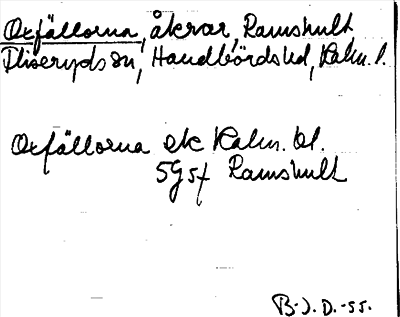 Oxfällorna, åkrar, Ramshult,
Fliseryds sn, Handbörds hd, Kalm. l.
Oxfällorna ek Kalm. bl.
5G5f Ramshult
B-J. D. -55.